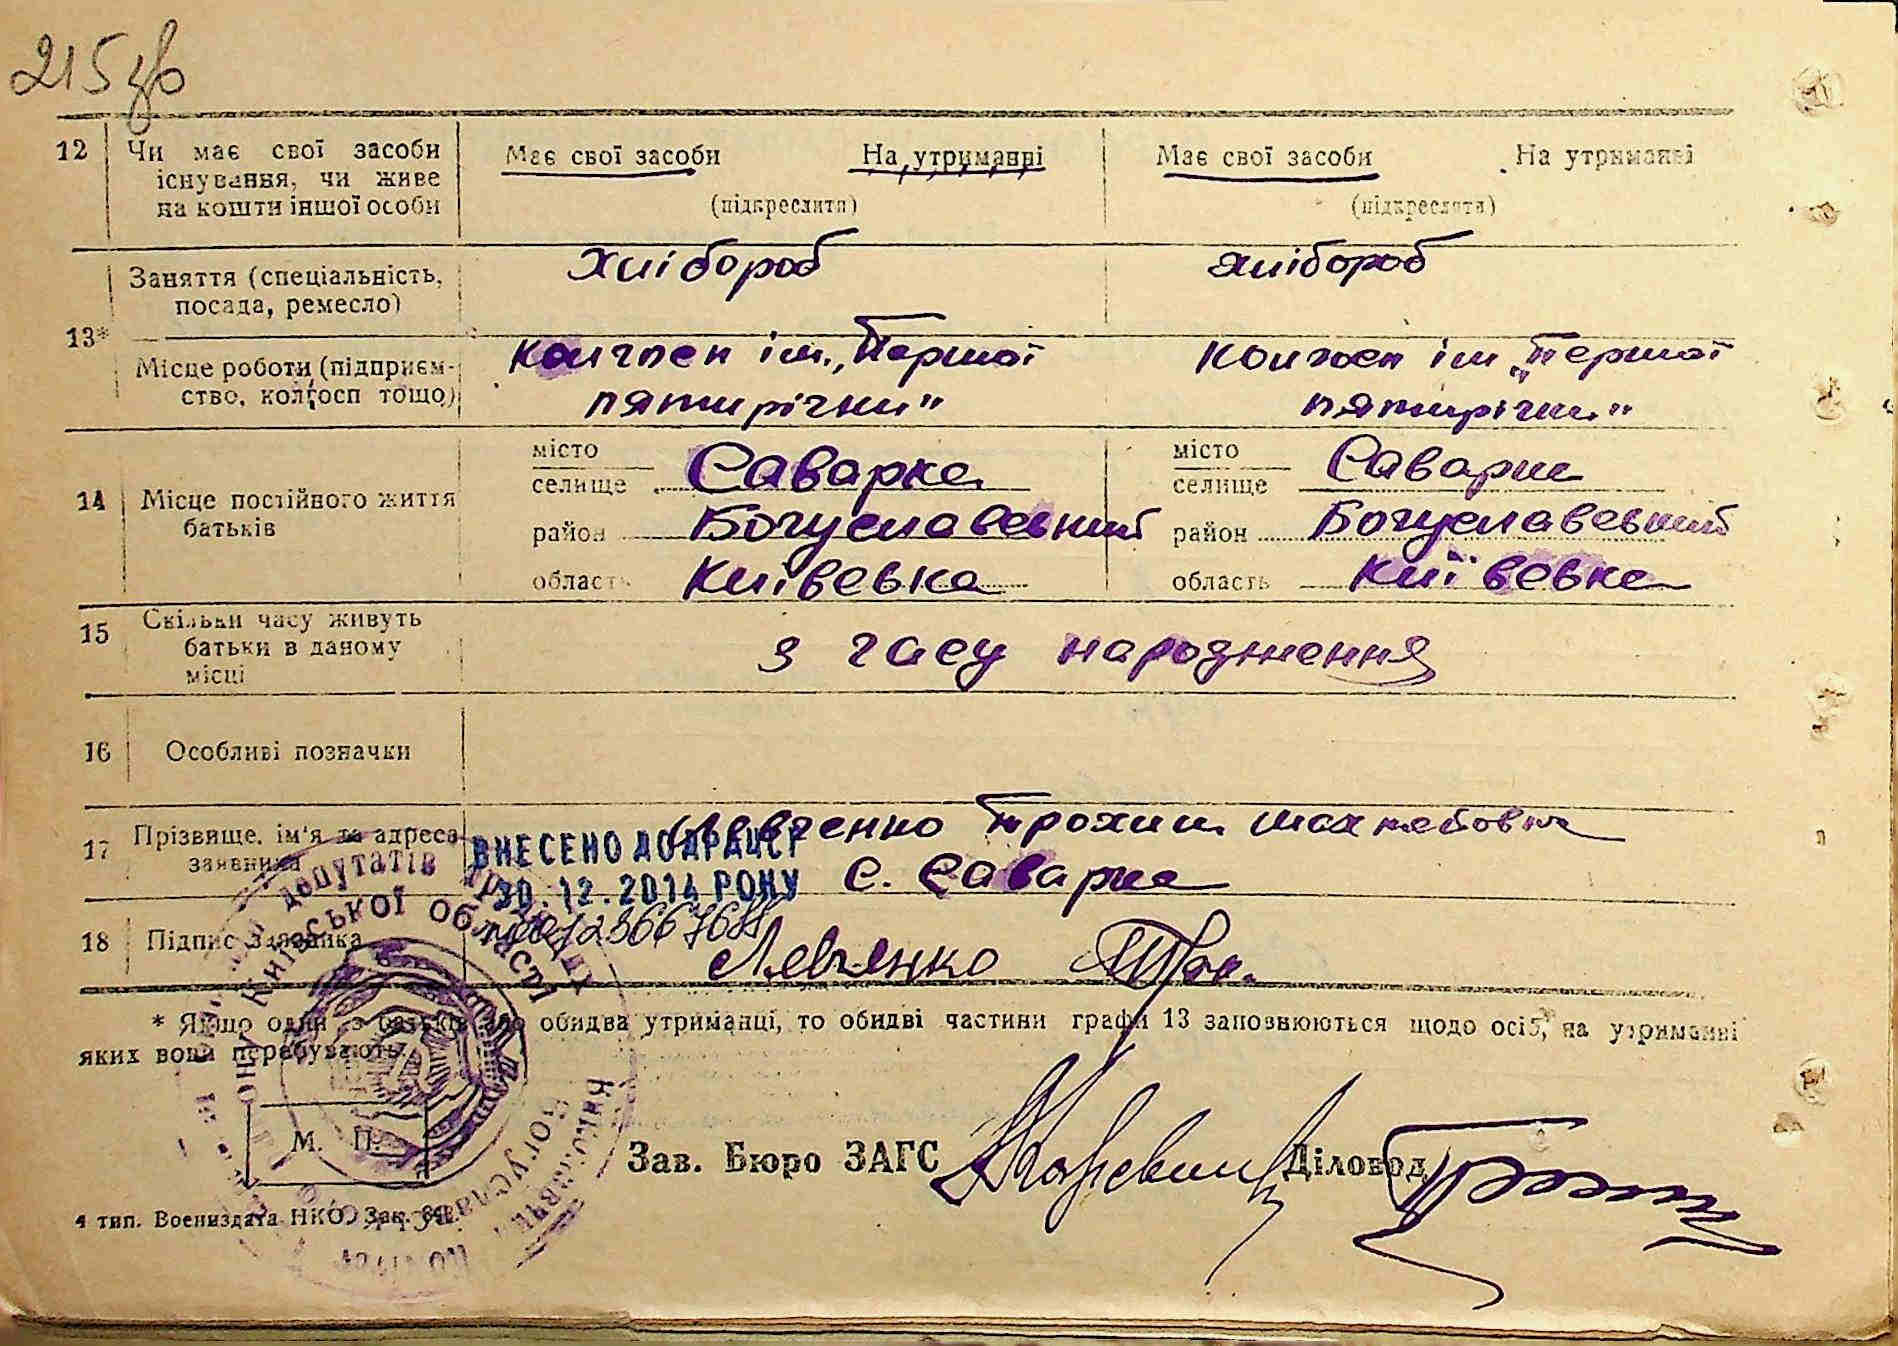 215зв
12 Чи має свої засоби існування, чи живе на кошти іншої особи
Має свої засоби На утриманні
(підкреслити)
Має свої засоби На утриманні
(підкреслити)
13* Заняття (спеціальність, посада, ремесло)
хлібороб
хлібороб
Місце роботи (підприєм-
ство, колгосп тощо)
Колгосп ім. „Першої
пятирічки"
Колгосп ім „Першої
пятирічки"
14 Місце постійного життя
батьків
місто
селище Саварка
район Богуславський
област Київська
місто
селище Саварка
район Богуславський
область Київська
15 Скільки часу живуть
батьки в даному
місці
з часу народження
16 Особливі позначки
17 Прізвище, ім'я та адреса
заявника
Левченко Трохим
с. Саварка
ВНЕСЕНО ДО ДРАЦСГ
30.12.2014 РОКУ
18 Підпис заявника
Левченко
* Якщо один з батьків або обидва утриманці, то обидві частини графи 13 заповнюються щодо осіб, на утриманні
яких вони перебувають.
М. П.
Зав. Бюро ЗАГС
Діловод
депутатів трудящих
Київської області
4 тип. Воениздата НКО. Зак.